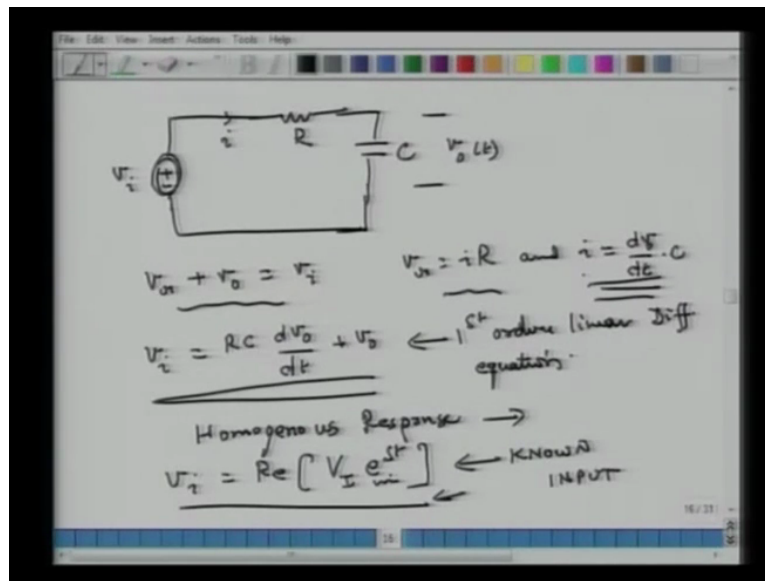 File Edit View Insert Actions Tools Help
i R
V_i + - C v_o(t)
V_r + v_o = v_i V_r = iR and i = dv/dt . C
v_i = RC dv_o/dt + v_o ← 1st order linear Diff
equation.
Homogenous Response →
v_i = Re [ V_I e^st ] ← KNOWN
INPUT
16/33
16